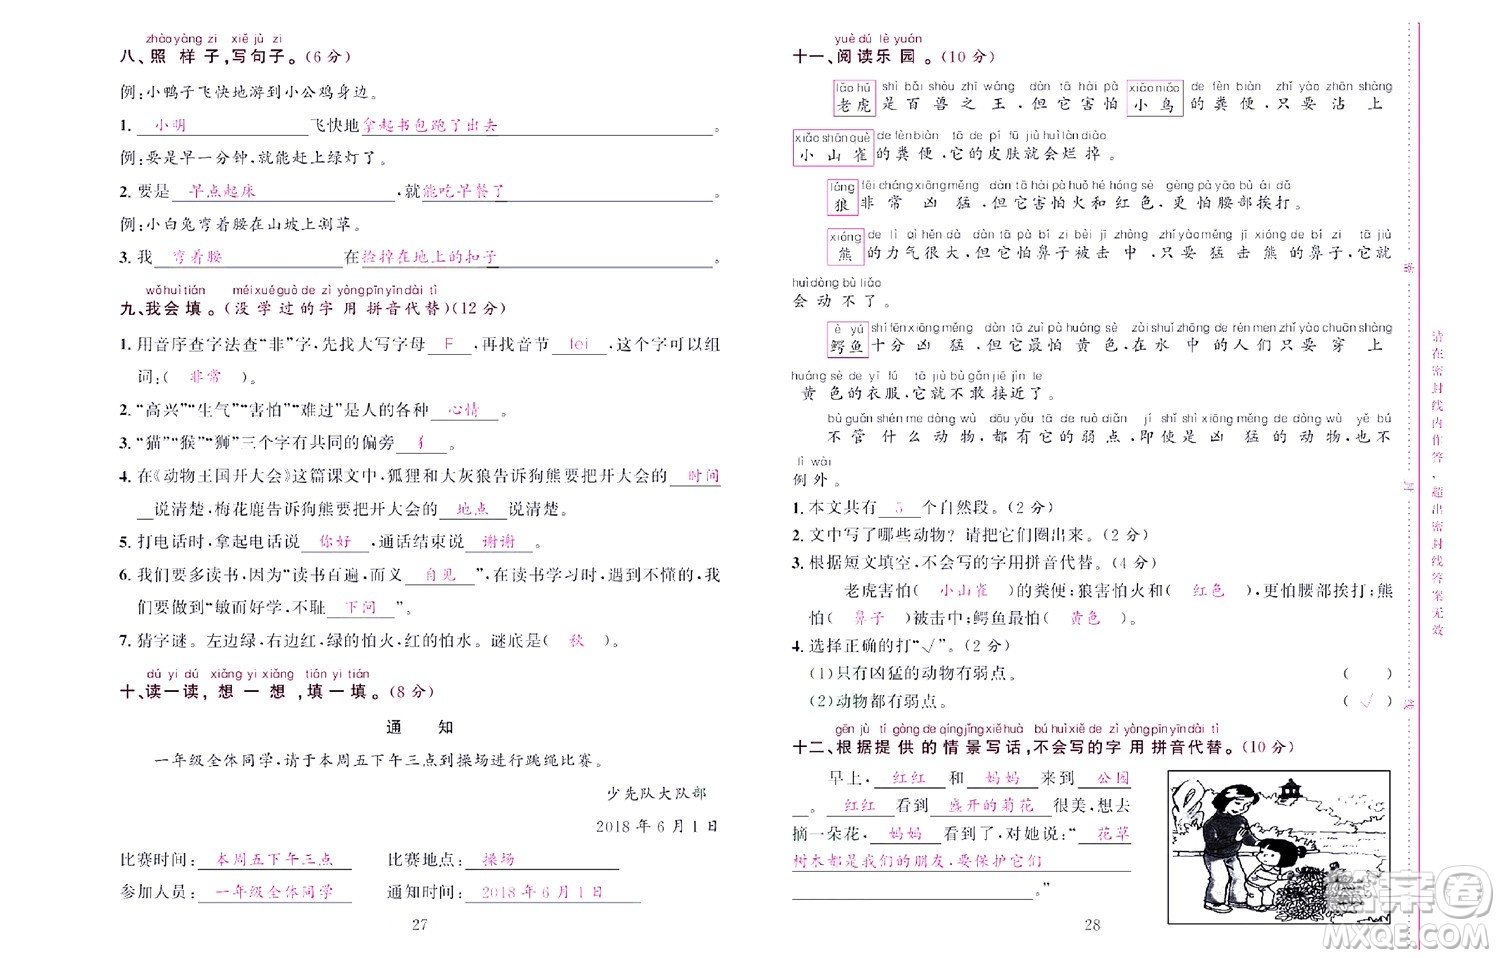 zhào yàng zi xiě jù zi
八、照样子,写句子。(6分)
例:小鸭子飞快地游到小公鸡身边。
1. 小明 飞快地 拿起书包跑了出去 。
例:要是早一分钟,就能赶上绿灯了。
2. 要是 早点起床 ,就 能吃早餐了 。
例:小白兔弯着腰在山坡上割草。
3. 我 弯着腰 在 捡掉在地上的扣子 。
wǒ huì tián méi xué guò de zì yòng pīn yīn dài tì
九、我会填。(没学过的字用拼音代替)(12分)
1. 用音序查字法查“非”字,先找大写字母 F ,再找音节 fei ,这个字可以组
词:( 非常 )。
2. “高兴”“生气”“害怕”“难过”是人的各种 心情 。
3. “猫”“猴”“狮”三个字有共同的偏旁 犭 。
4. 在《动物王国开大会》这篇课文中,狐狸和大灰狼告诉狗熊要把开大会的 时间
说清楚,梅花鹿告诉狗熊要把开大会的 地点 说清楚。
5. 打电话时,拿起电话说 你好 ,通话结束说 谢谢 。
6. 我们要多读书,因为“读书百遍,而义 自见 ”,在读书学习时,遇到不懂的,我
们要做到“敏而好学,不耻 下问 ”。
7. 猜字谜。左边绿,右边红,绿的怕火,红的怕水。谜底是( 秋 )。
dú yi dú xiǎng yi xiǎng tián yi tián
十、读一读,想一想,填一填。(8分)
通 知
一年级全体同学,请于本周五下午三点到操场进行跳绳比赛。
少先队大队部
2018年6月1日
比赛时间: 本周五下午三点 比赛地点: 操场
参加人员: 一年级全体同学 通知时间: 2018年6月1日
27
yuè dú lè yuán
十一、阅读乐园。(10分)
lǎo hǔ shì bǎi shòu zhī wáng dàn tā hài pà xiǎo niǎo de fèn biàn zhǐ yào zhān shàng
老虎是百兽之王,但它害怕小鸟的粪便,只要沾上
xiǎo shān què de fèn biàn tā de pí fū jiù huì làn diào
小山雀的粪便,它的皮肤就会烂掉。
láng fēi cháng xiōng měng dàn tā hài pà huǒ hé hóng sè gèng pà yāo bù ái dǎ
狼非常凶猛,但它害怕火和红色,更怕腰部挨打。
xióng de lì qì hěn dà dàn tā pà bí zi bèi jī zhòng zhǐ yào měng jī xióng de bí zi tā jiù
熊的力气很大,但它怕鼻子被击中,只要猛击熊的鼻子,它就
huì dòng bù liǎo
会动不了。
è yú shí fēn xiōng měng dàn tā zuì pà huáng sè zài shuǐ zhōng de rén men zhǐ yào chuān shàng
鳄鱼十分凶猛,但它最怕黄色,在水中的人们只要穿上
huáng sè de yī fu tā jiù bù gǎn jiē jìn le
黄色的衣服,它就不敢接近了。
bù guǎn shén me dòng wù dōu yǒu tā de ruò diǎn jí shǐ shì xiōng měng de dòng wù yě bù
不管什么动物,都有它的弱点,即使是凶猛的动物,也不
lì wài
例外。
1. 本文共有 5 个自然段。(2分)
2. 文中写了哪些动物?请把它们圈出来。(2分)
3. 根据短文填空,不会写的字用拼音代替。(4分)
老虎害怕( 小山雀 )的粪便;狼害怕火和( 红色 ),更怕腰部挨打;熊
怕( 鼻子 )被击中;鳄鱼最怕( 黄色 )。
4. 选择正确的打“√”。(2分)
(1)只有凶猛的动物有弱点。 ( )
(2)动物都有弱点。 ( √ )
gēn jù tí gòng de qíng jǐng xiě huà bú huì xiě de zì yòng pīn yīn dài tì
十二、根据提供的情景写话,不会写的字用拼音代替。(10分)
早上, 红红 和 妈妈 来到 公园
。 红红 看到 盛开的菊花 很美,想去
摘一朵花, 妈妈 看到了,对她说:“ 花草
树木都是我们的朋友,要保护它们
。”
28
密 封 线
请在密封线内作答,超出密封线答案无效
答案卷
MXQE.COM